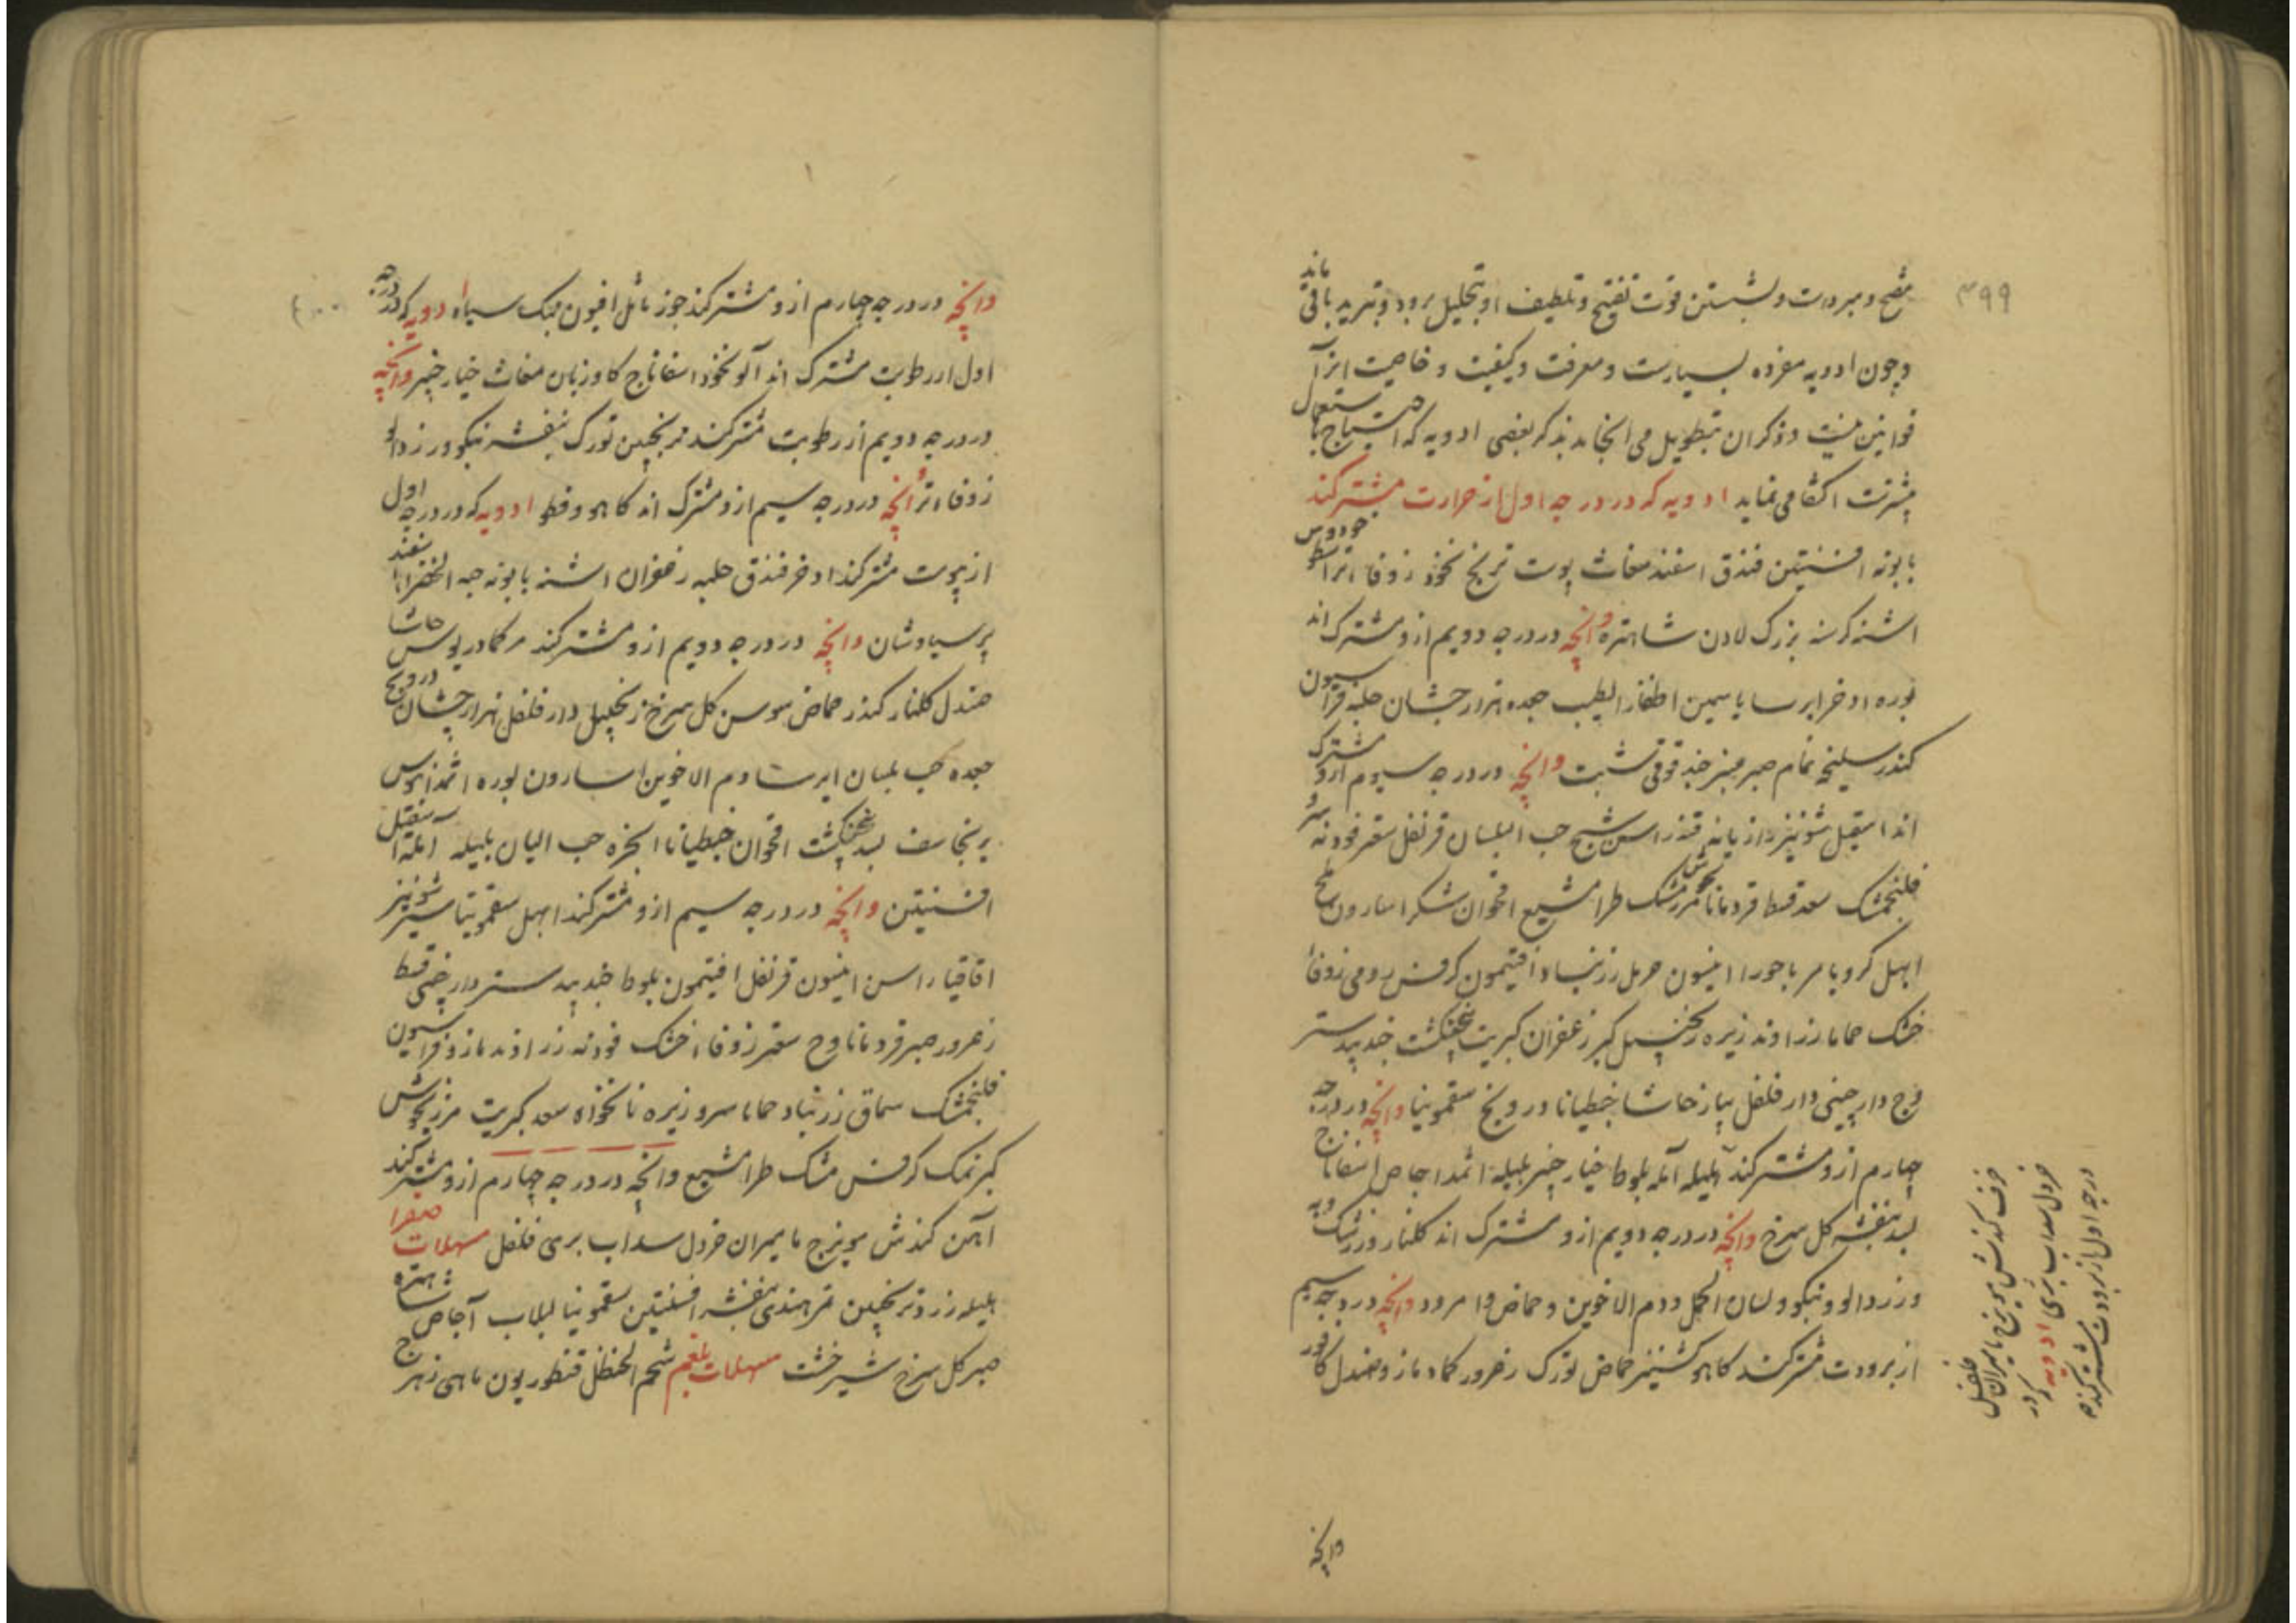 ۳۹۹
مفتح و مبردات و بشستن قوت تفتیح و تلطیف او بتحلیل برود و تبرید باقی ماند
و چون ادویه مفرده بسیارست و معرفت و کیفیت و خاصیت انرا
قوانین نیست و ذکر ان بتطویل می انجامد بذکر بعضی ادویه که احتیاج باستعمال
بیشترست اکتفا می نماید ادویه که در درجه اول از حرارت مشترکند
بابونه افسنتین فندق اسفند مغاث پوست ترنج نخود زوفاء تر اسطوخودوس
اشنه کرسنه بزرک لادن شاهتره وانچه در درجه دویم ازو مشترک اند
بوره اذخر ایرسا یاسمین اظفار الطیب جعده هزارجشان حلبه فراسیون
کندر سلیخه نمام صبر عنبر حندقوقی شبت وانچه در درجه سیوم ازو مشترک
اند اسقیل شونیز رازیانه راسن شیح حب البلسان قرنفل سقر فودنه
فلنجمشک سعد قسط قردمانا مشک طرامشیع اقحوان شکر اسارون
ابهل کرویا مر باجورا انیسون حرمل زرنباد افتیمون کرفس رومی زوفاء
خشک حماما زراوند زیره زنجبیل کبر زعفران کبریت پنجنکشت جندبیدستر
وج دارچینی دارفلفل پیاز حاشا جنطیانا درونج سقمونیا وانچه در درجه
چهارم ازو مشترکند هلیله آمله بلوط خیارچنبر بلیله اثمد اجاص اسفاناج
بسد بنفشه کل سرخ وانچه در درجه دویم ازو مشترک اند کلنار و زرشک
و زردالو و نیکو و لسان الحمل و دم الاخوین و حماض و امرود وانچه در درجه سیم
از برودت مشترکند کاهو کشنیز حماض تورک زعرور کماه مازو صندل کافور
حرف کندش میویزج مامیران فلفل
خردل سداب بری ادویه که در
درجه اول از برودت مشترکند
وانچه
۴۰۰
وانچه در درجه چهارم ازو مشترکند جوز ماثل افیون بنک سیاه ادویه که در درجه
اول از رطوبت مشترک اند آلو نخود اسفاناج کاوزبان مغاث خیارچنبر وانچه
در درجه دویم از رطوبت مشترکند ترنجبین تورک بنفشه نیکو و زردالو
زوفاء تر وانچه در درجه سیم ازو مشترک اند کاهو و قطو ادویه که در درجه اول
از یبوست مشترکند اذخر فندق حلبه زعفران اشنه بابونه حبه الخضرا اسفند
پرسیاوشان وانچه در درجه دویم ازو مشترکند مر کمادریوس حاشا
صندل کلنار کندر حماض سوسن کل سرخ زنجبیل دارفلفل هزارجشان درونج
جعده حب بلسان ایرسا دم الاخوین اسارون بوره اثمد
برنجاسف بسد پنجنکشت اقحوان جنطیانا انجره حب البان بلیله آمله اسقیل
افسنتین وانچه در درجه سیم ازو مشترکند ابهل سقمونیا سیر شونیز
اقاقیا راسن انیسون قرنفل افتیمون بلوط جندبیدستر دارچینی قسط
زعرور صبر قردمانا وج سقر زوفاء خشک فودنه زراوند مازو فراسیون
فلنجمشک سماق زرنباد حماما سرو زیره نانخواه سعد کبریت مرزنجوش
کبر نمک کرفس مشک طرامشیع وانچه در درجه چهارم ازو مشترکند
آهن کندش میویزج مامیران خردل سداب بری فلفل مسهلات صفرا
هلیله زرد ترنجبین تمرهندی بنفشه افسنتین سقمونیا لبلاب آجاص شاهتره
صبر کل سرخ شیرخشت مسهلات بلغم شحم الحنظل قنطوریون ماهی زهرج